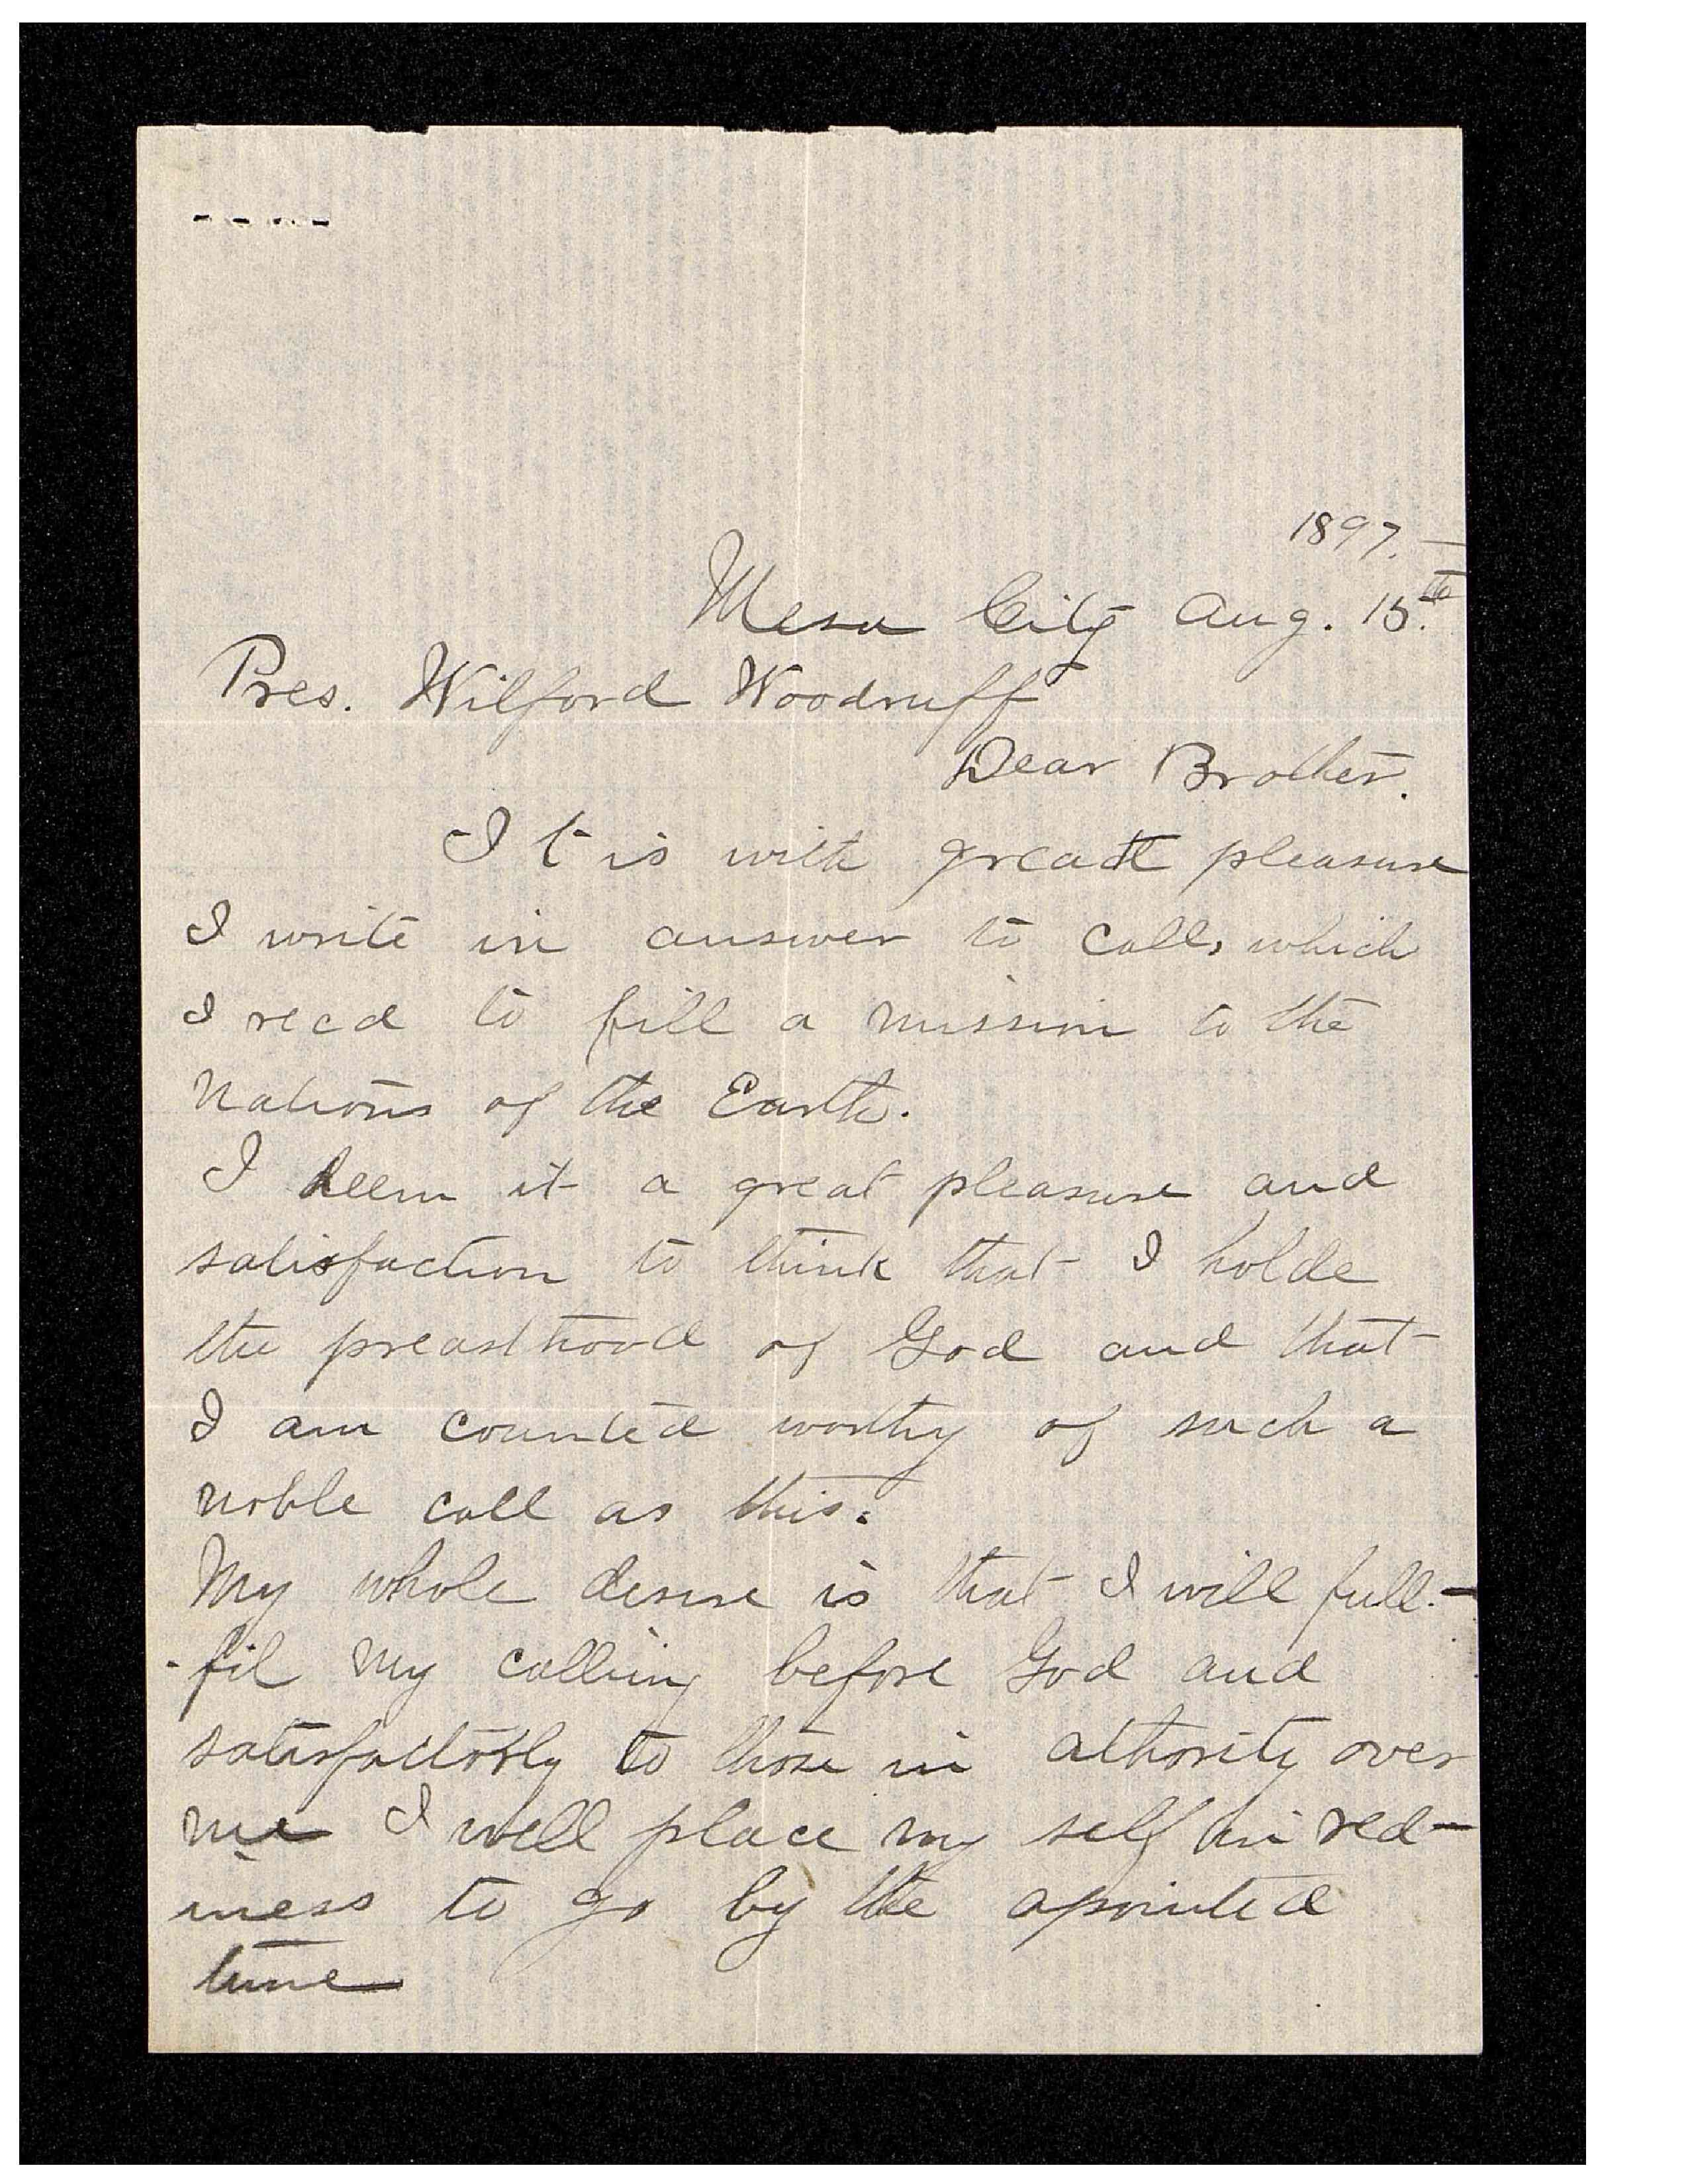 1897. —
Mesa City Aug. 15th
Pres. Wilford Woodruff
Dear Brother.
It is with great pleasure
I write in answer to call, which
I recd to fill a mission to the
Nations of the Earth.
I deem it a great pleasure and
satisfaction to think that I holde
the preasthood of God and that
I am counted worthy of such a
noble call as this.
My whole desire is that I will full-
-fil my calling before God and
satisfactorly to those in athority over
me I will place my self in red-
iness to go by the apointed
time